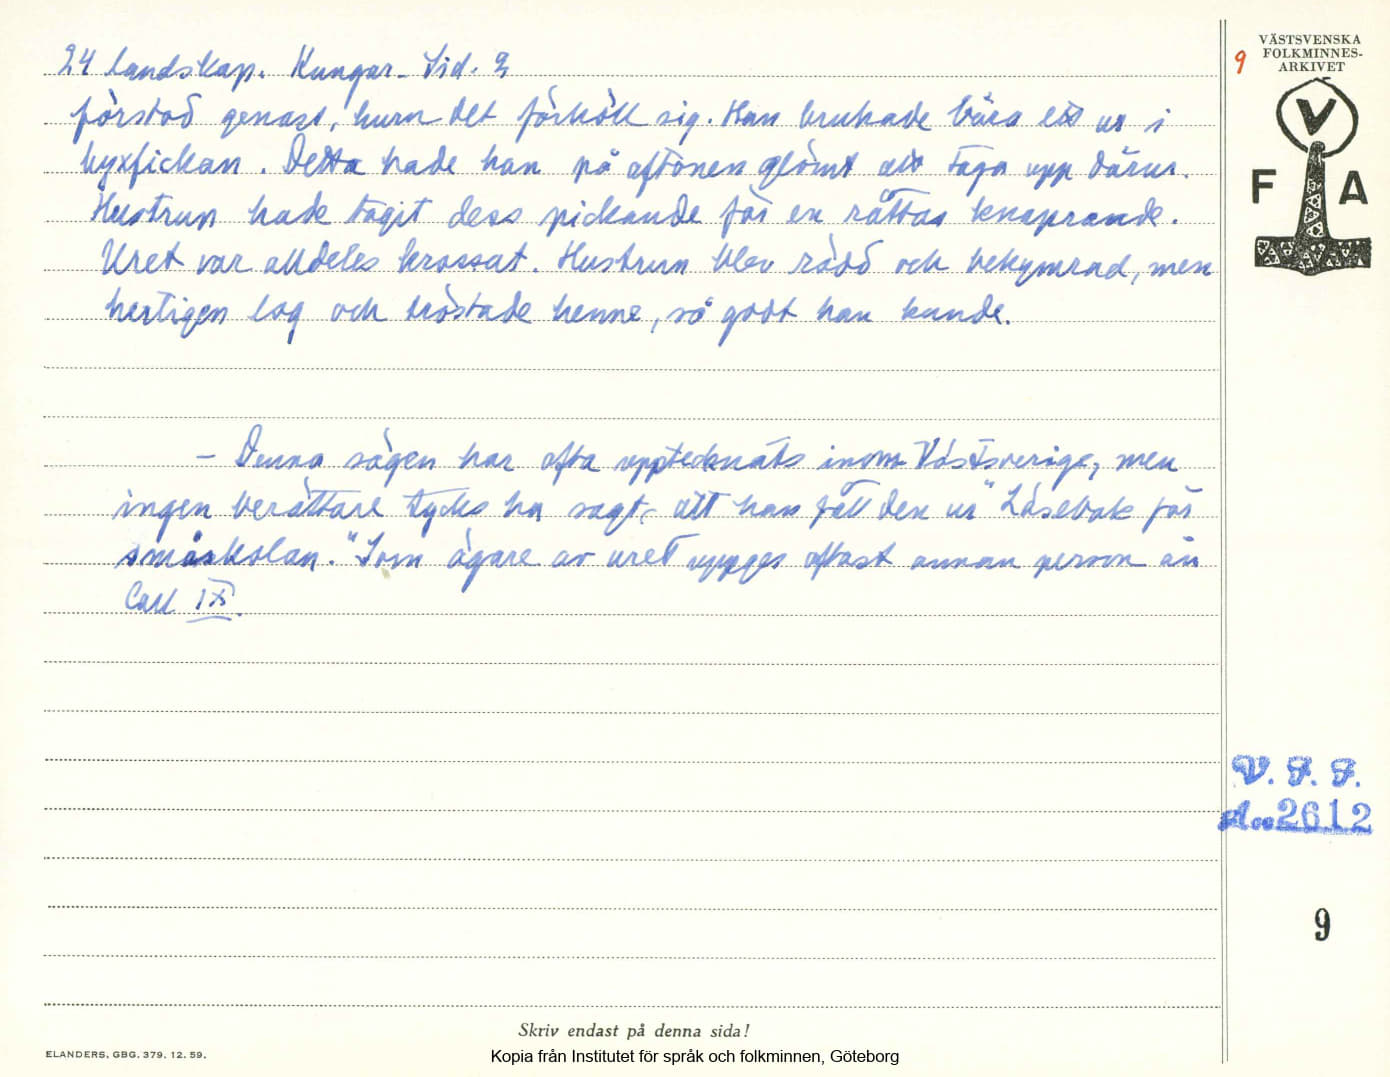 24 Landskap. Kungar. Sid. 2
förstod genast, huru det förhöll sig. Han brukade bära ett ur i
byxfickan. Detta hade han på aftonen glömt att taga upp därur.
Hustrun hade tagit dess pickande för en råttas knaprande.
Uret var alldeles krossat. Hustrun blev rädd och bekymrad, men
hertigen log och tröstade henne, så godt han kunde.
- Denna sägen har ofta upptecknats inom Västsverige, men
ingen berättare tycks ha sagt, att han fått den ur "Läsebok för
småskolan." Som ägare av uret uppges oftast annan person än
Carl IX.
9
VÄSTSVENSKA
FOLKMINNES-
ARKIVET
V
F A
V. F. F.
Acc 2612
9
Skriv endast på denna sida!
ELANDERS, GBG. 379. 12. 59.
Kopia från Institutet för språk och folkminnen, Göteborg